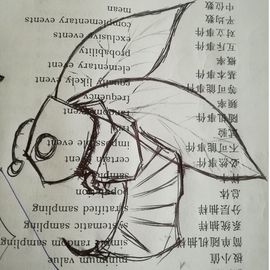 极小值 minimum value
简单随机抽样 simple random sampling
系统抽样 systematic sampling
分层抽样 stratified sampling
总体 population
必然事件 certain event
不可能事件 impossible event
试验
频率 frequency
等可能事件 equally likely event
基本事件 elementary event
概率 probability
互斥事件 exclusive events
对立事件 complementary events
平均数 mean
中位数